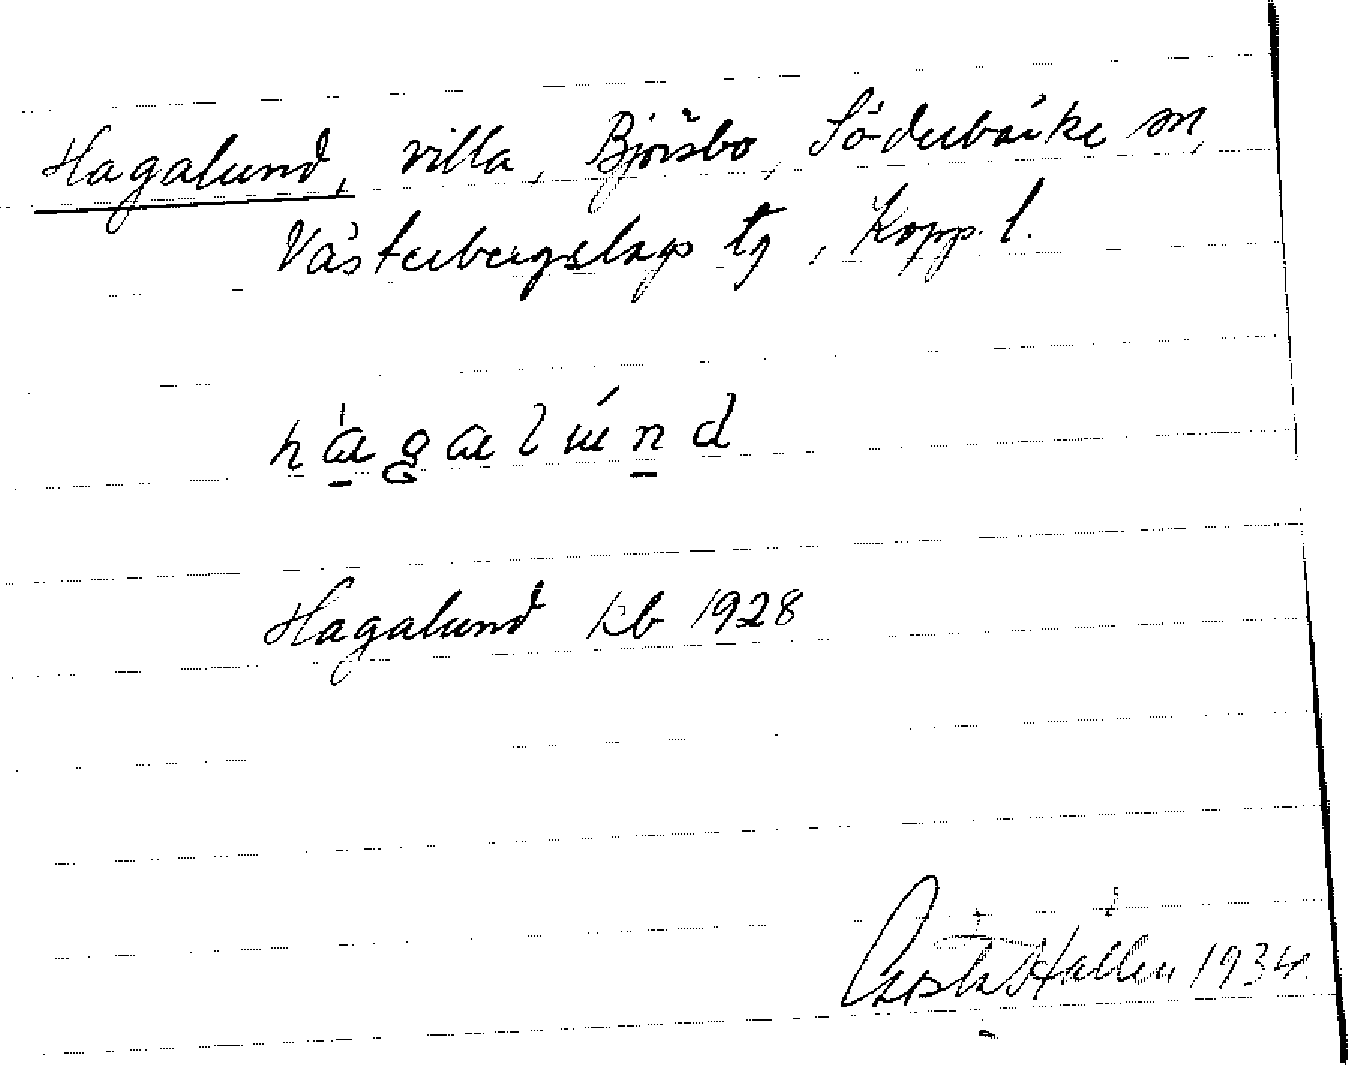 Hagalund, villa, Björsbo, Söderbärke sn,
Västerbergslags tg, Kopp. l.
hagalund
Hagalund kb 1928
Gösta Hallén 1934.